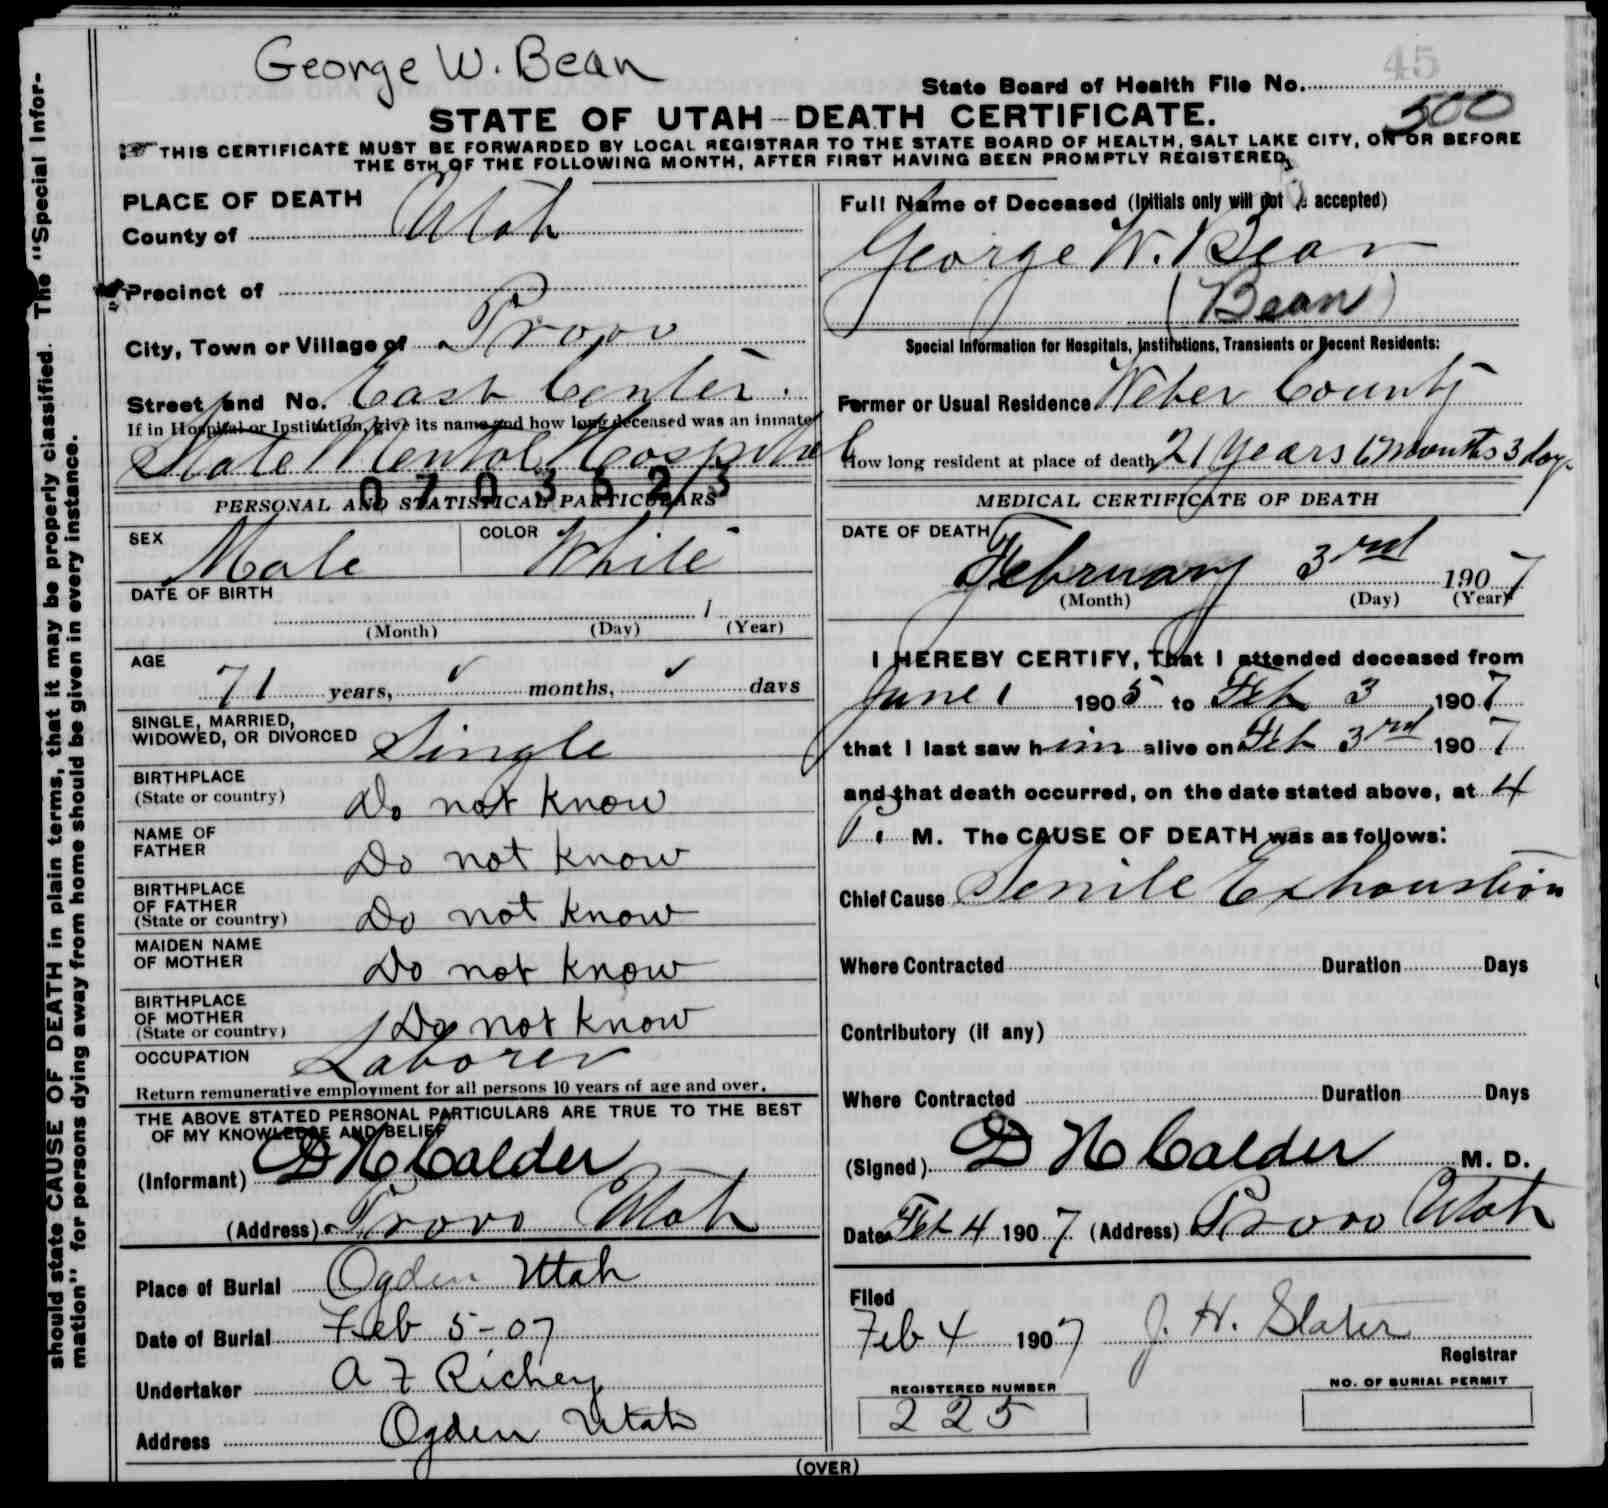 George W. Bean
45
State Board of Health File No.
500
STATE OF UTAH—DEATH CERTIFICATE.
THIS CERTIFICATE MUST BE FORWARDED BY LOCAL REGISTRAR TO THE STATE BOARD OF HEALTH, SALT LAKE CITY, ON OR BEFORE
THE 5TH OF THE FOLLOWING MONTH, AFTER FIRST HAVING BEEN PROMPTLY REGISTERED.
should state CAUSE OF DEATH in plain terms, that it may be properly classified. The "Special Infor-
mation" for persons dying away from home should be given in every instance.
PLACE OF DEATH
County of Utah
Precinct of
City, Town or Village of Provo
Street and No. East Center.
If in Hospital or Institution, give its name and how long deceased was an inmate
State Mental Hospital
0703523
PERSONAL AND STATISTICAL PARTICULARS
SEX Male COLOR White
DATE OF BIRTH
1
(Month) (Day) (Year)
AGE
71 years, ✓ months, ✓ days
SINGLE, MARRIED,
WIDOWED, OR DIVORCED Single
BIRTHPLACE
(State or country) Do not know
NAME OF
FATHER Do not know
BIRTHPLACE
OF FATHER
(State or country) Do not know
MAIDEN NAME
OF MOTHER Do not know
BIRTHPLACE
OF MOTHER
(State or country) Do not know
OCCUPATION Laborer
Return remunerative employment for all persons 10 years of age and over.
THE ABOVE STATED PERSONAL PARTICULARS ARE TRUE TO THE BEST
OF MY KNOWLEDGE AND BELIEF
(Informant) D H Calder
(Address) Provo Utah
Place of Burial Ogden Utah
Date of Burial Feb 5-07
Undertaker A F Richey
Address Ogden Utah
Full Name of Deceased (Initials only will not be accepted)
George W. Bean
(Bean)
Special Information for Hospitals, Institutions, Transients or Recent Residents:
Former or Usual Residence Weber County
How long resident at place of death 21 years 6 months 3 days
MEDICAL CERTIFICATE OF DEATH
DATE OF DEATH
February 3rd 1907
(Month) (Day) (Year)
I HEREBY CERTIFY, That I attended deceased from
June 1 1905 to Feb 3 1907
that I last saw him alive on Feb 3rd 1907
and that death occurred, on the date stated above, at 4
P. M. The CAUSE OF DEATH was as follows:
Chief Cause Senile Exhaustion
Where Contracted Duration Days
Contributory (if any)
Where Contracted Duration Days
(Signed) D H Calder M. D.
Date Feb 4 1907 (Address) Provo Utah
Filed
Feb 4 1907 J. H. Slater
Registrar
REGISTERED NUMBER
225
NO. OF BURIAL PERMIT
(OVER)